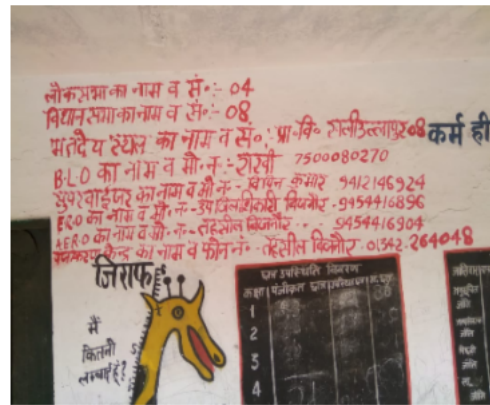 लोकसभा का नाम व सं०:- 04
विधान सभा का नाम व सं०:- 08
मतदेय स्थल का नाम व सं०: प्रा० वि० 08
B.L.O का नाम व मो.न.- राखी 7500080270
सुपरवाईजर का नाम व मो.न.- विपिन कुमार 9412146924
E.R.O का नाम व मो.न.- उप जिलाधिकारी बिजनौर -9454416896
A.E.R.O का नाम व मो.न.- तहसील बिजनौर 9454416904
केन्द्र का नाम व फोन नं.- तहसील बिजनौर. 01342.264048
कर्म ही
जिराफ
मैं
कितनी
छात्र उपस्थिति विवरण
कक्षा पंजीकृत छात्र
1
2
3
4